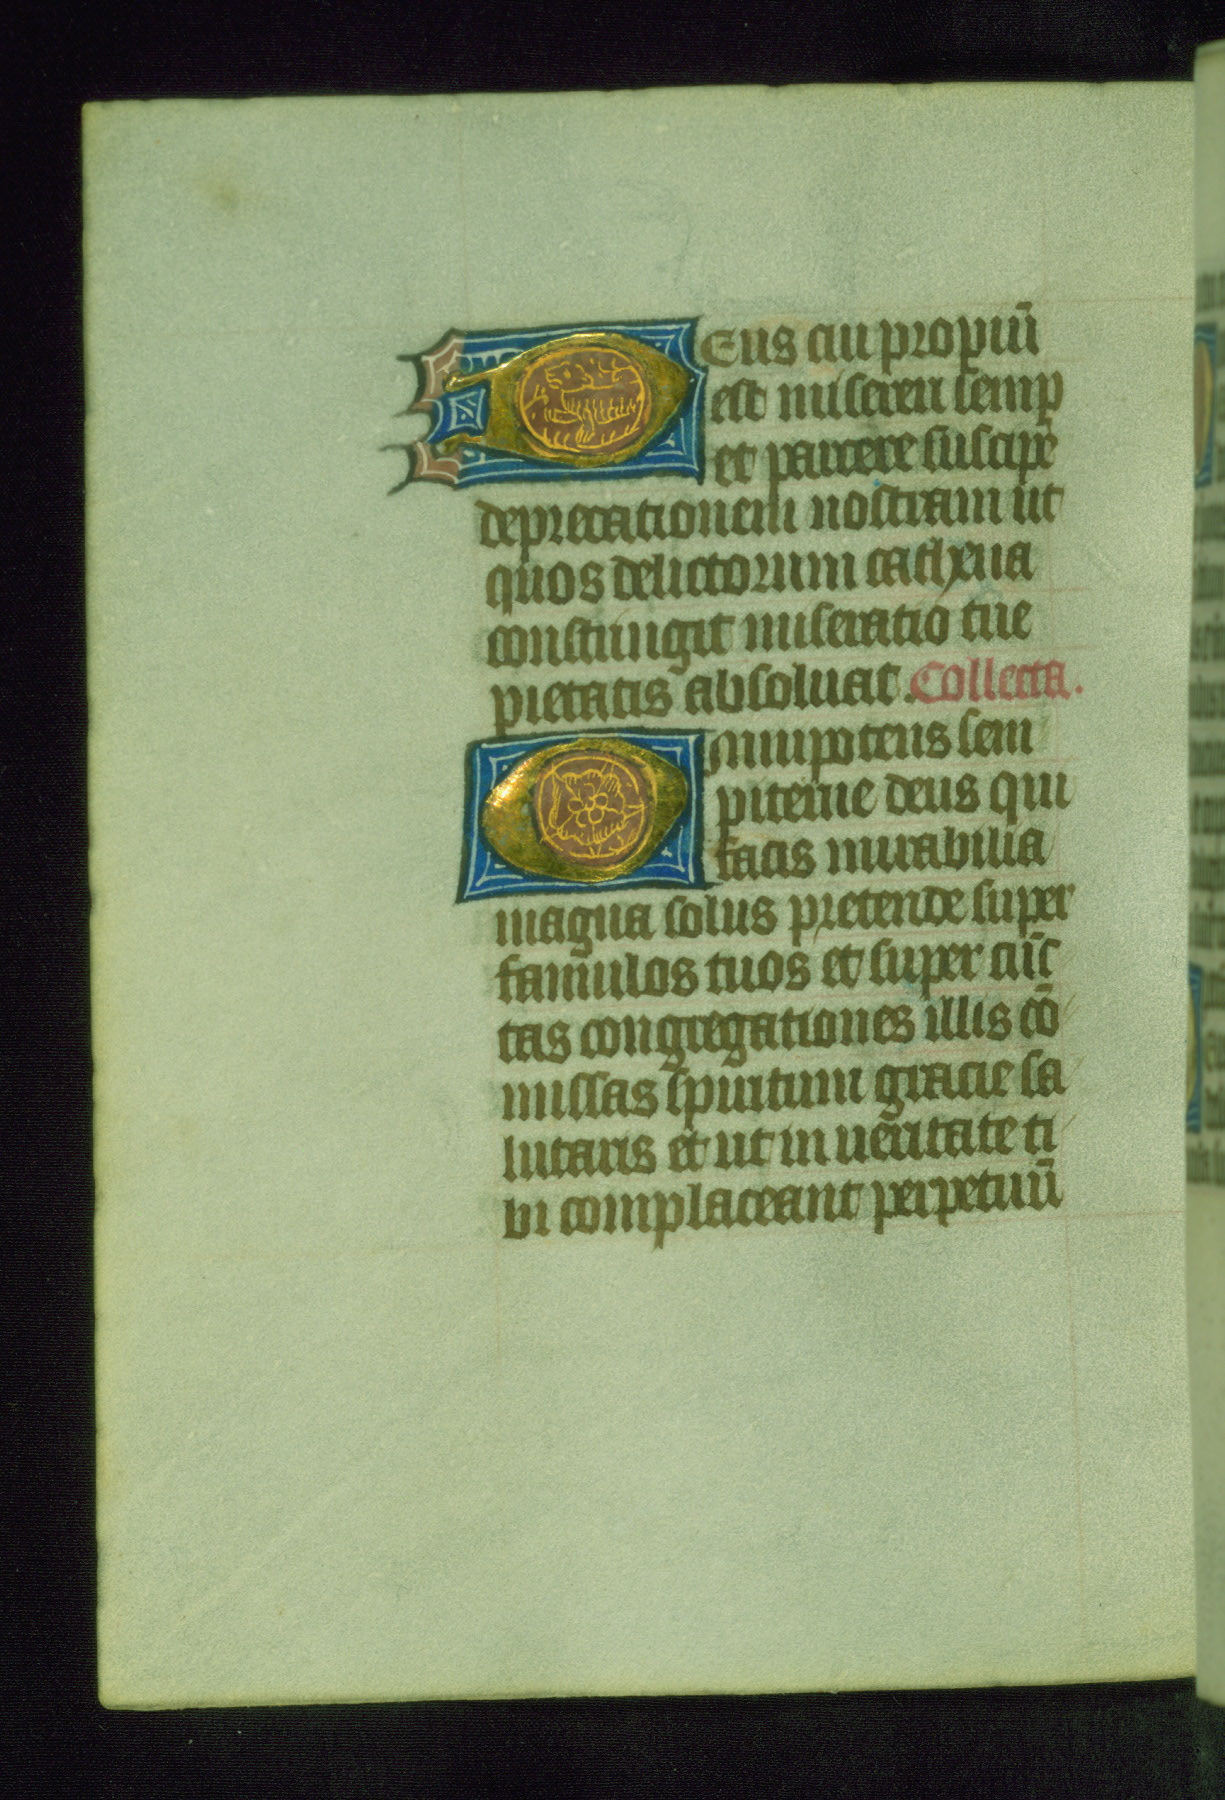 Deus cui propiū
est misereri semp
et parcere suscipe
deprecationem nostram ut
quos delictorum cathena
constringit miseratio tue
pietatis absoluat. Collecta.
Omnipotens sem
piterne deus qui
facis mirabilia
magna solus pretende super
famulos tuos et super cūc
tas congregationes illis cō
missas spiritum gracie sa
lutaris et ut in ueritate ti
bi complaceant perpetuū